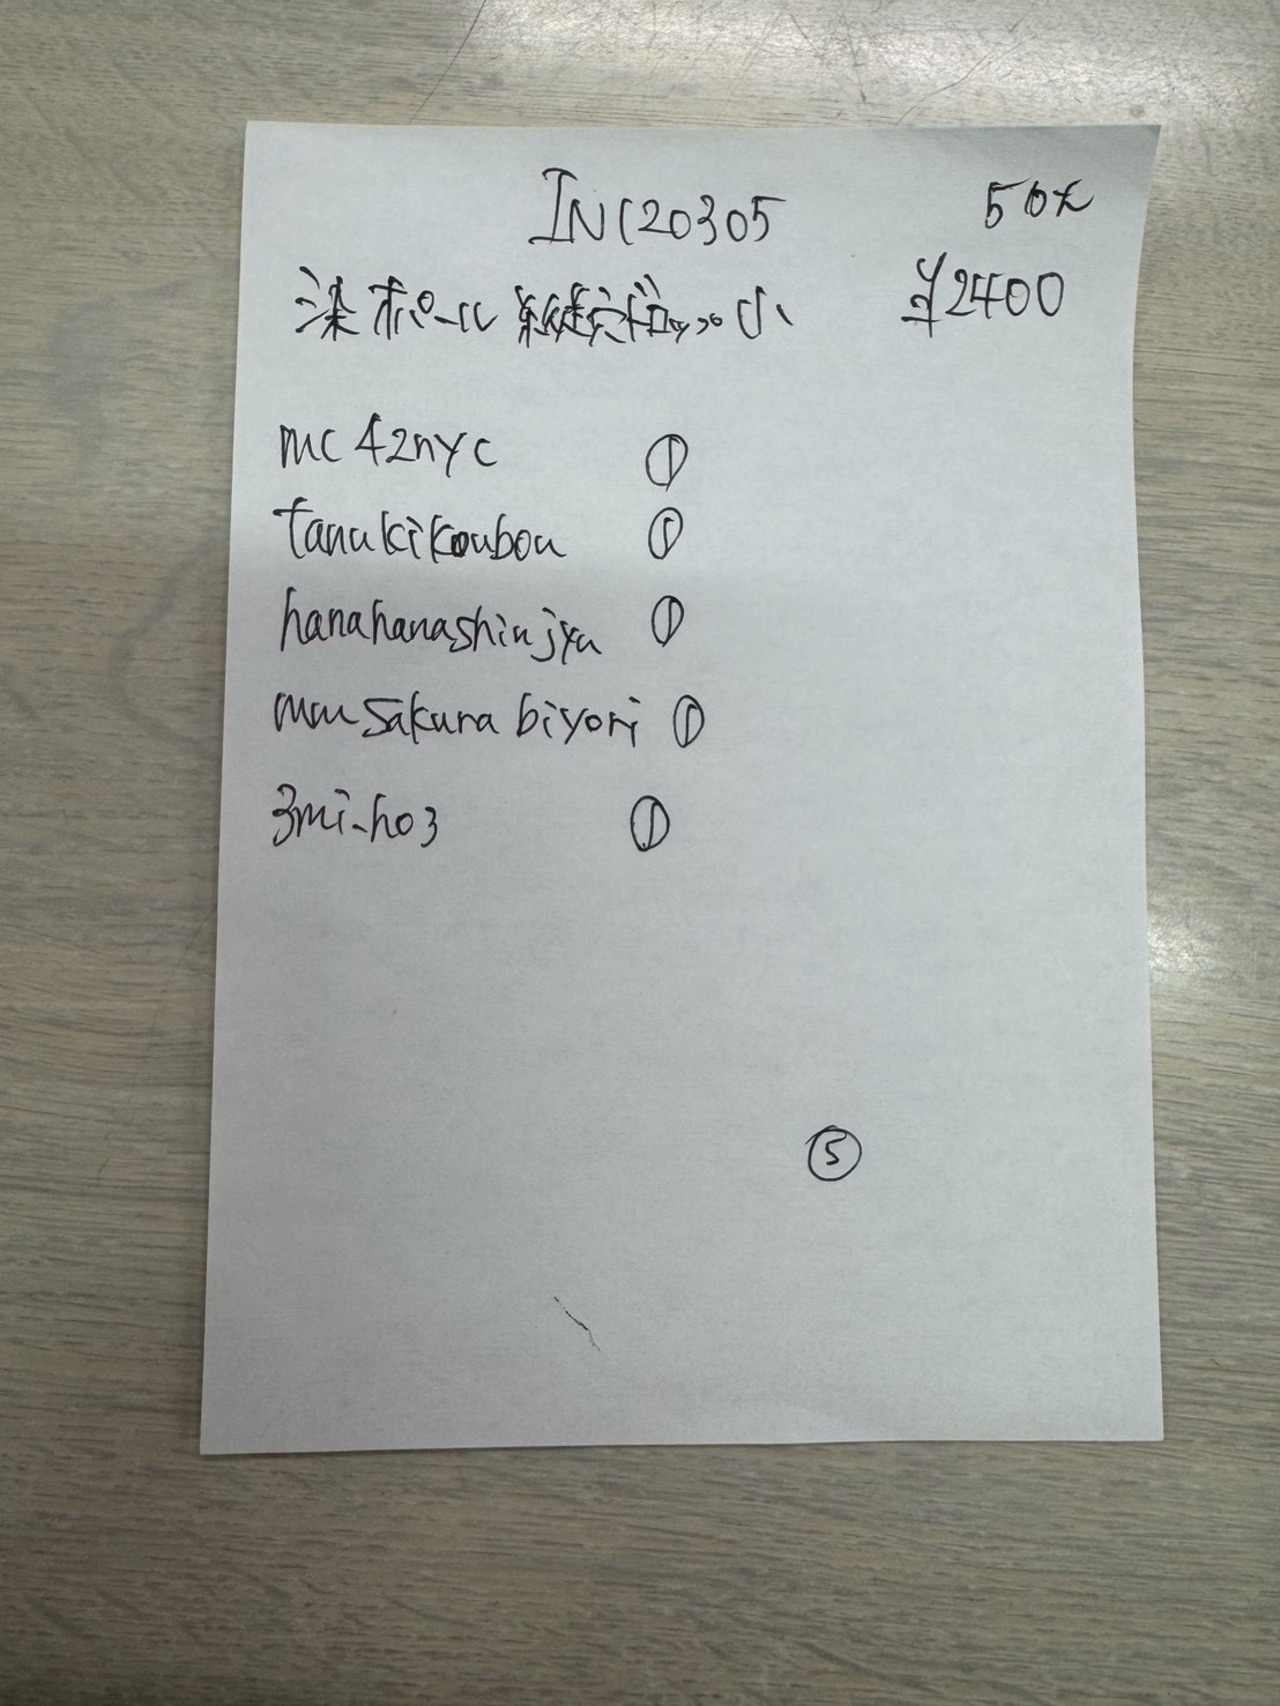 INC20305 50%
染ポール 縫穴ドロップ 小 ¥2400
mc42nyc ①
tanukikoubou ①
hanahanashinjyu ①
mmsakurabiyori ①
3mi-ho3 ①
⑤